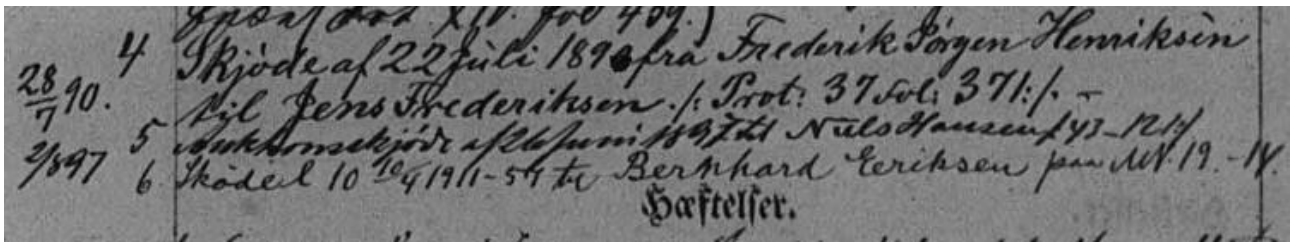 fol 459.)
4 Skjöde af 22 Juli 1890 fra Frederik Jörgen Henriksen
28/7 90. til Jens Frederiksen ./: Prot: 37 Fol: 371:/. –
2/8 97 5 Auktionsskjöde af 26 Juni 1897 til Niels Hansen
6. Sköde l 10 19/4 1911 – 54 til Bernhard Eeriksen paa MN. 19. – 14.
Hæftelser.